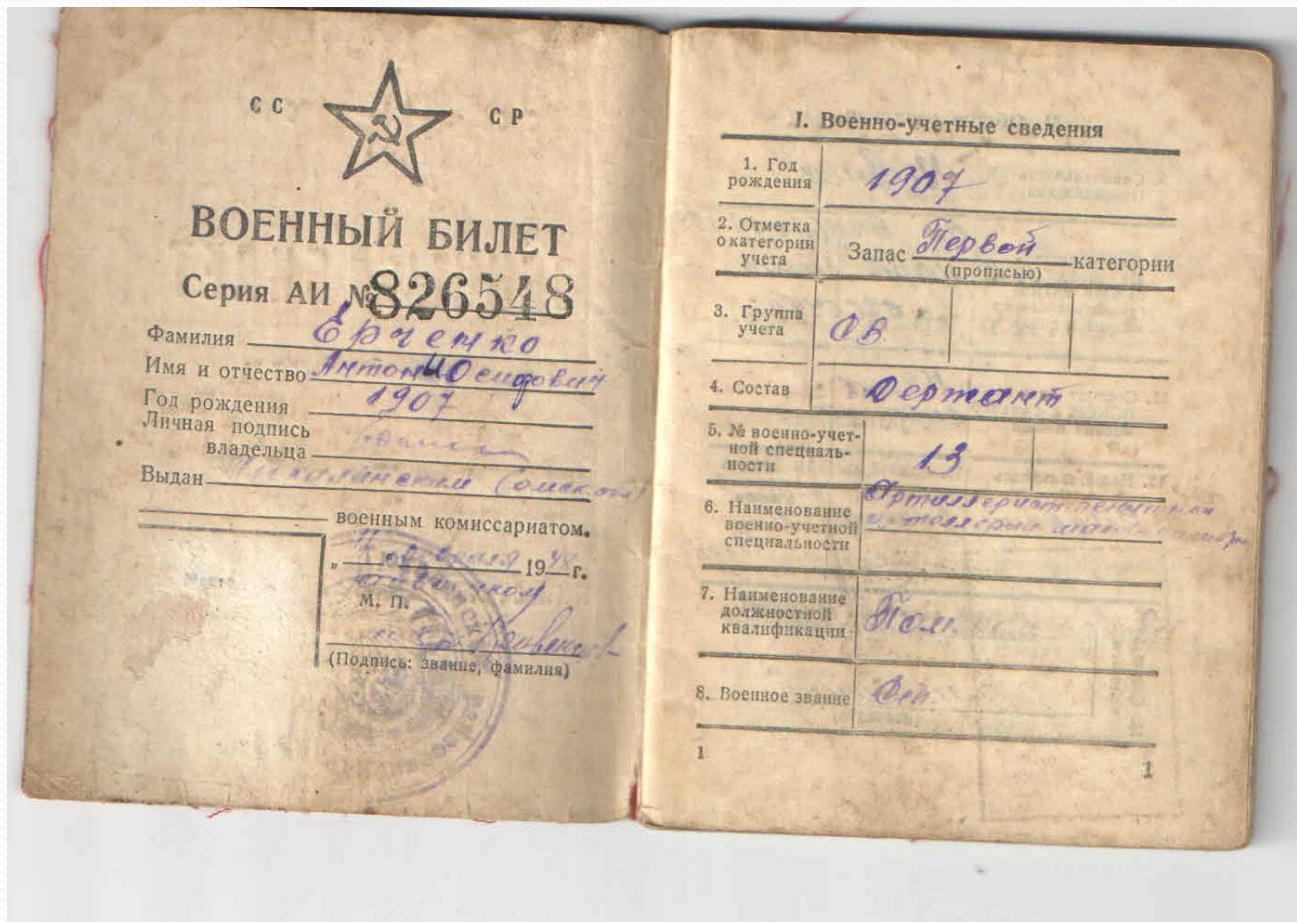 СС СР
ВОЕННЫЙ БИЛЕТ
Серия АИ № 826548
Фамилия Ерченко
Имя и отчество Антон Иосифович
Год рождения 1907
Личная подпись
владельца
Выдан
военным комиссариатом.
" февраля 1948 г.
М. П.
(Подпись: звание, фамилия)
Место
I. Военно-учетные сведения
1. Год
рождения
1907
2. Отметка
о категории
учета
Запас Первой категории
(прописью)
3. Группа
учета
СВ
4. Состав
Сержант
5. № военно-учет-
ной специаль-
ности
13
6. Наименование
военно-учетной
специальности
Артиллерист
7. Наименование
должностной
квалификации
Пом.
8. Военное звание
1
1